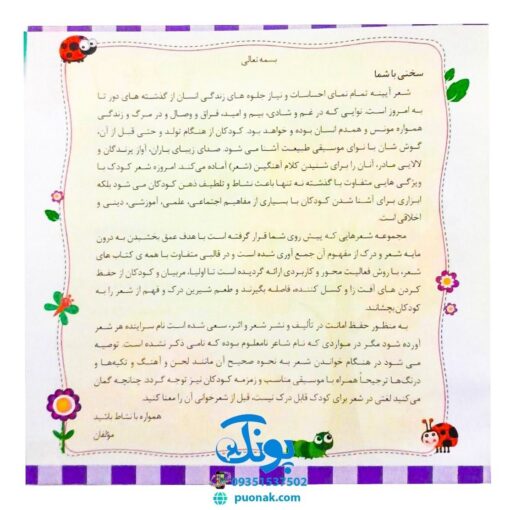 بسمه تعالی
سخنی با شما
شعر آیینه تمام نمای احساسات و نیاز جلوه های زندگی انسان از گذشته های دور تا
به امروز است. نوایی که در غم و شادی، بیم و امید، فراق و وصال و در مرگ و زندگی
همواره مونس و همدم انسان بوده و خواهد بود. کودکان از هنگام تولد و حتی قبل از آن،
گوش شان با نوای موسیقی طبیعت آشنا می شود. صدای زیبای باران، آواز پرندگان و
لالایی مادر، آنان را برای شنیدن کلام آهنگین (شعر) آماده می‌کند. امروزه شعر کودک با
ویژگی هایی متفاوت با گذشته نه تنها باعث نشاط و تلطیف ذهن کودکان می شود بلکه
ابزاری برای آشنا شدن کودکان با بسیاری از مفاهیم اجتماعی، علمی، آموزشی، دینی و
اخلاقی است.
مجموعه شعرهایی که پیش روی شما قرار گرفته است با هدف عمق بخشیدن به درون
مایه شعر و درک از مفهوم آن جمع آوری شده است و در قالبی متفاوت با همه ی کتاب های
شعر، با روش فعالیت محور و کاربردی ارائه گردیده است تا اولیا، مربیان و کودکان از حفظ
کردن های آفت زا و کسل کننده، فاصله بگیرند و طعم شیرین درک و فهم از شعر را به
کودکان بچشانند.
به منظور حفظ امانت در تألیف و نشر شعر و اثر، سعی شده است نام سراینده هر شعر
آورده شود مگر در مواردی که نام شاعر نامعلوم بوده که نامی ذکر نشده است. توصیه
می شود در هنگام خواندن شعر به نحوه صحیح آن مانند لحن و آهنگ و تکیه‌ها و
درنگ‌ها ترجیحاً همراه با موسیقی مناسب و زمزمه کودکان نیز توجه گردد چنانچه گمان
می کنید لغتی در شعر برای کودک قابل درک نیست، قبل از شعرخوانی آن را معنا کنید.
همواره با نشاط باشید
مؤلفان
پونک
09351537502
puonak.com